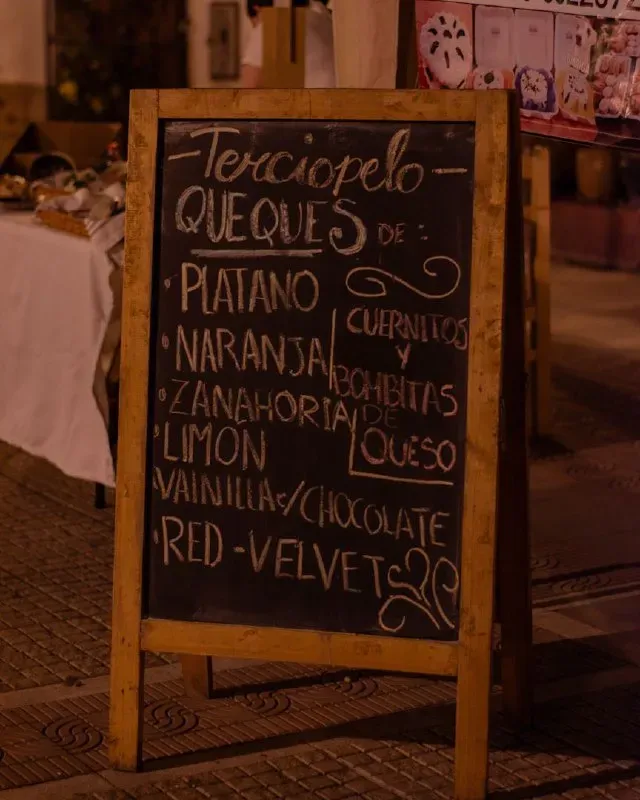 -Terciopelo-
QUEQUES DE:
• PLATANO
• NARANJA
• ZANAHORIA
• LIMÓN
VAINILLA c/CHOCOLATE
• RED-VELVET
CUERNITOS
Y
BOMBITAS
DE
QUESO